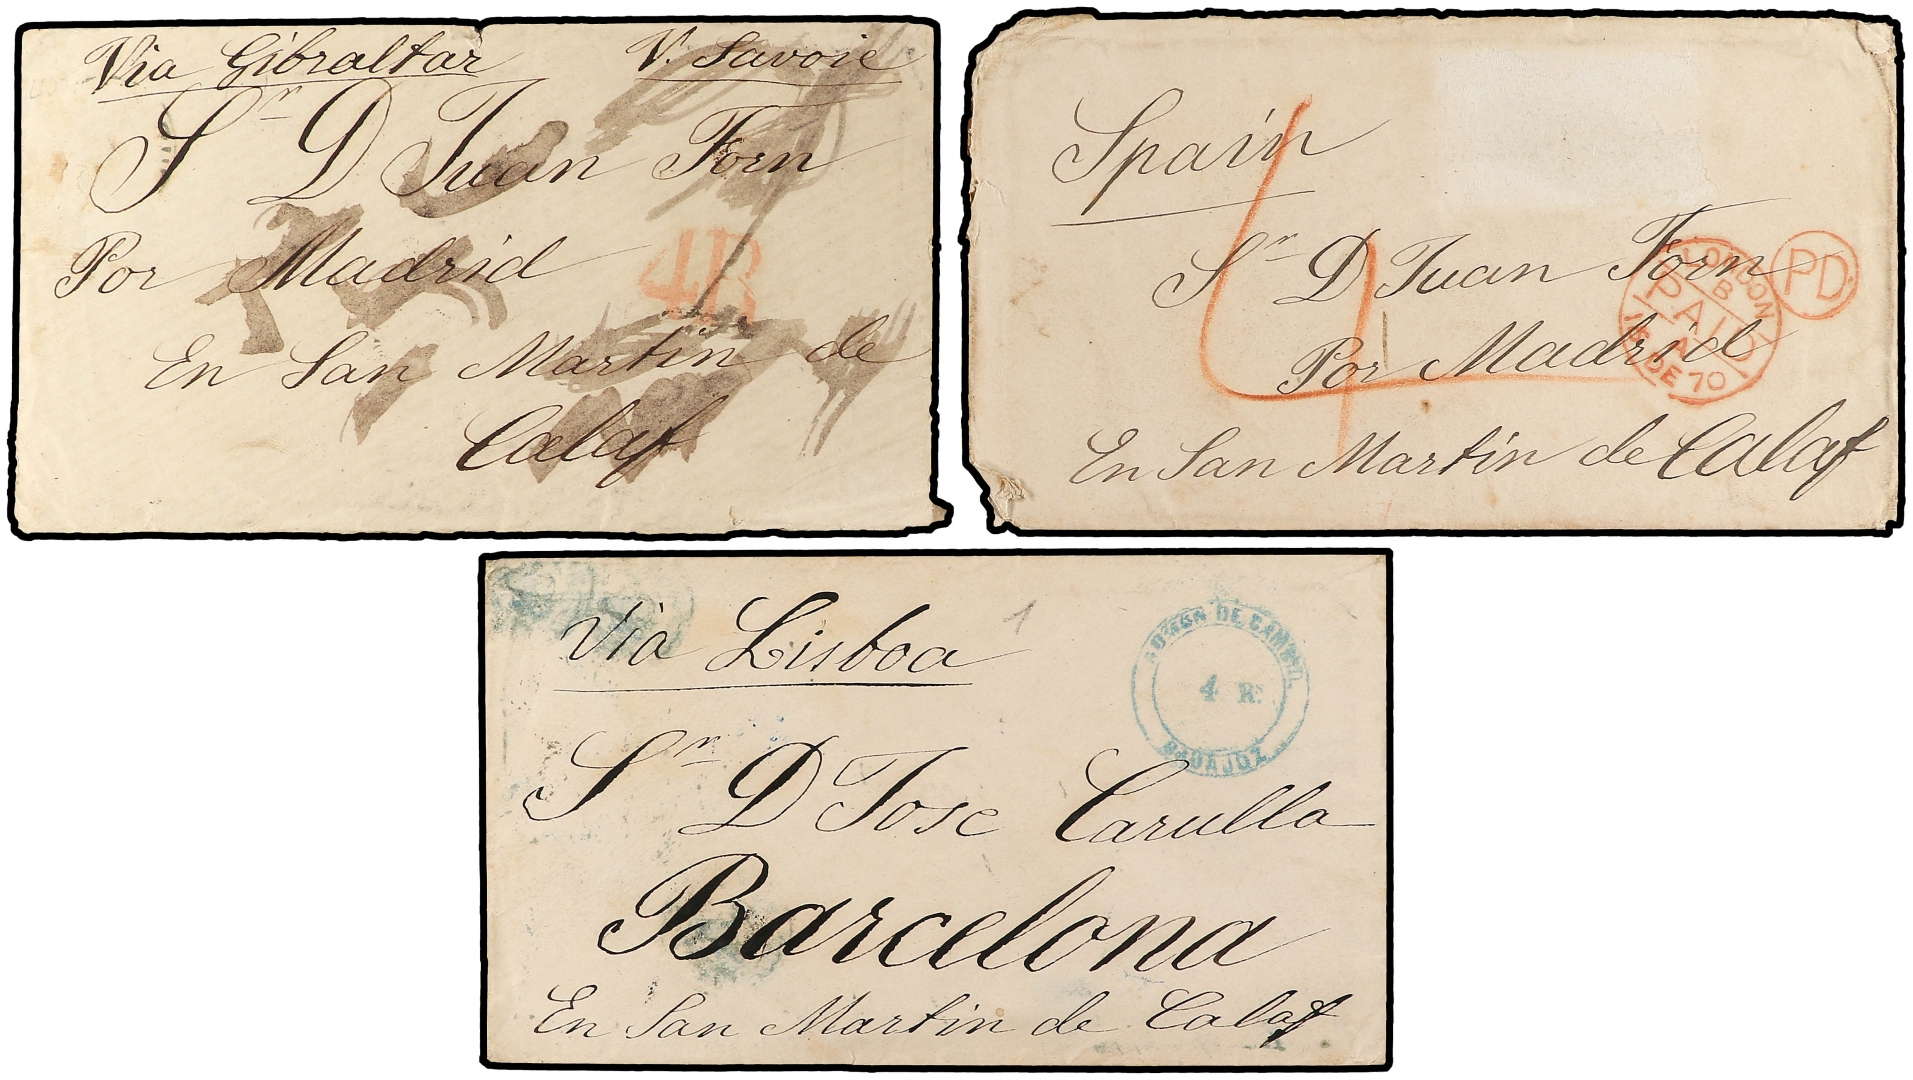 Via Gibraltar V. Savoie
Sr D Juan Forn
Por Madrid
4R
En San Martin de
Calaf
Spain
4
Sr D Juan Forn
PD
LONDON
B
PAID
A
DE 70
Por Madrid
En San Martin de Calaf
Via Lisboa
1
4 Rs
BADAJOZ
Sr D Jose Carulla
Barcelona
En San Martin de Calaf